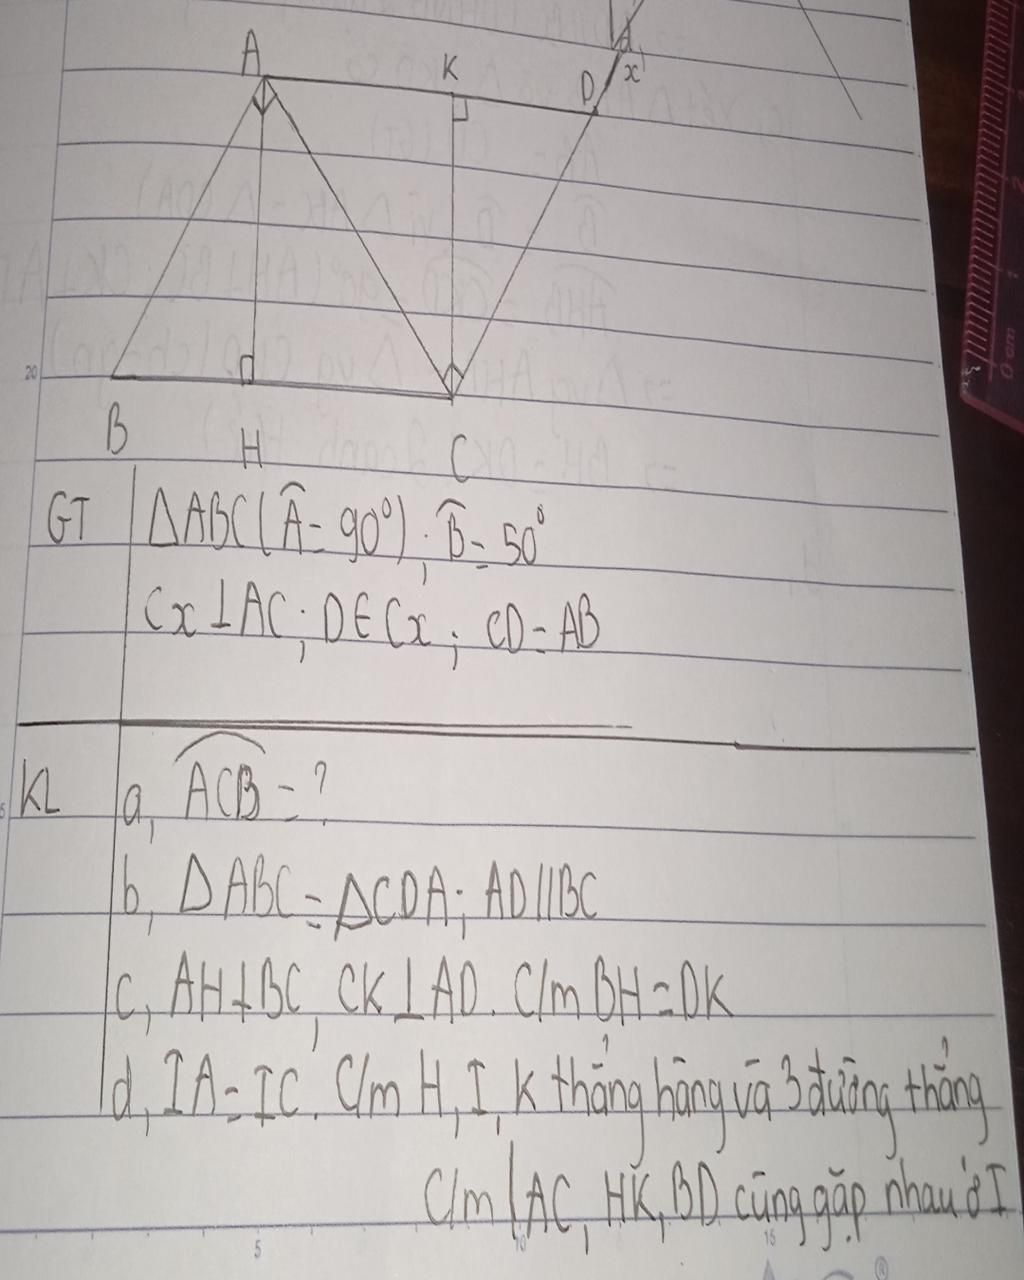 A
K
D
x
B
H
C
GT
ΔABC(Â = 90⁰); B̂ = 50⁰
Cx⊥AC; D∈Cx; CD = AB
KL
a, ACB = ?
b, ΔABC = ΔCDA; AD//BC
c, AH⊥BC, CK⊥AD. C/m BH = DK
d, IA = IC. C/m H, I, K thẳng hàng và 3 đường thẳng
C/m AC, HK, BD cùng gặp nhau ở I
20
5
10
15
0 cm
1
2